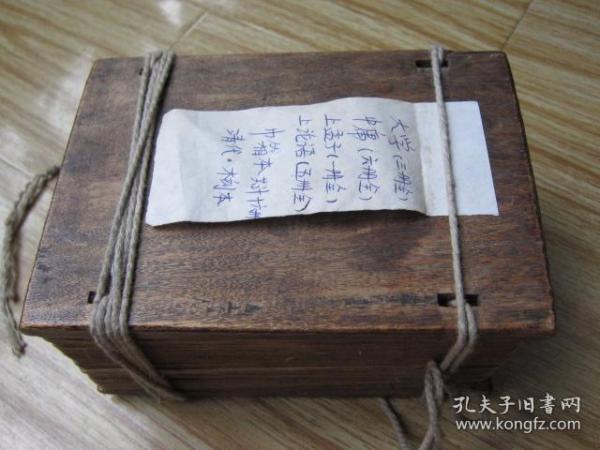 大学（三册全）
中庸（六册全）
上孟子（一册全）
上论语（五册全）
巾箱本 共十五册
清代·木刻本
孔夫子旧书网
www.kongfz.com